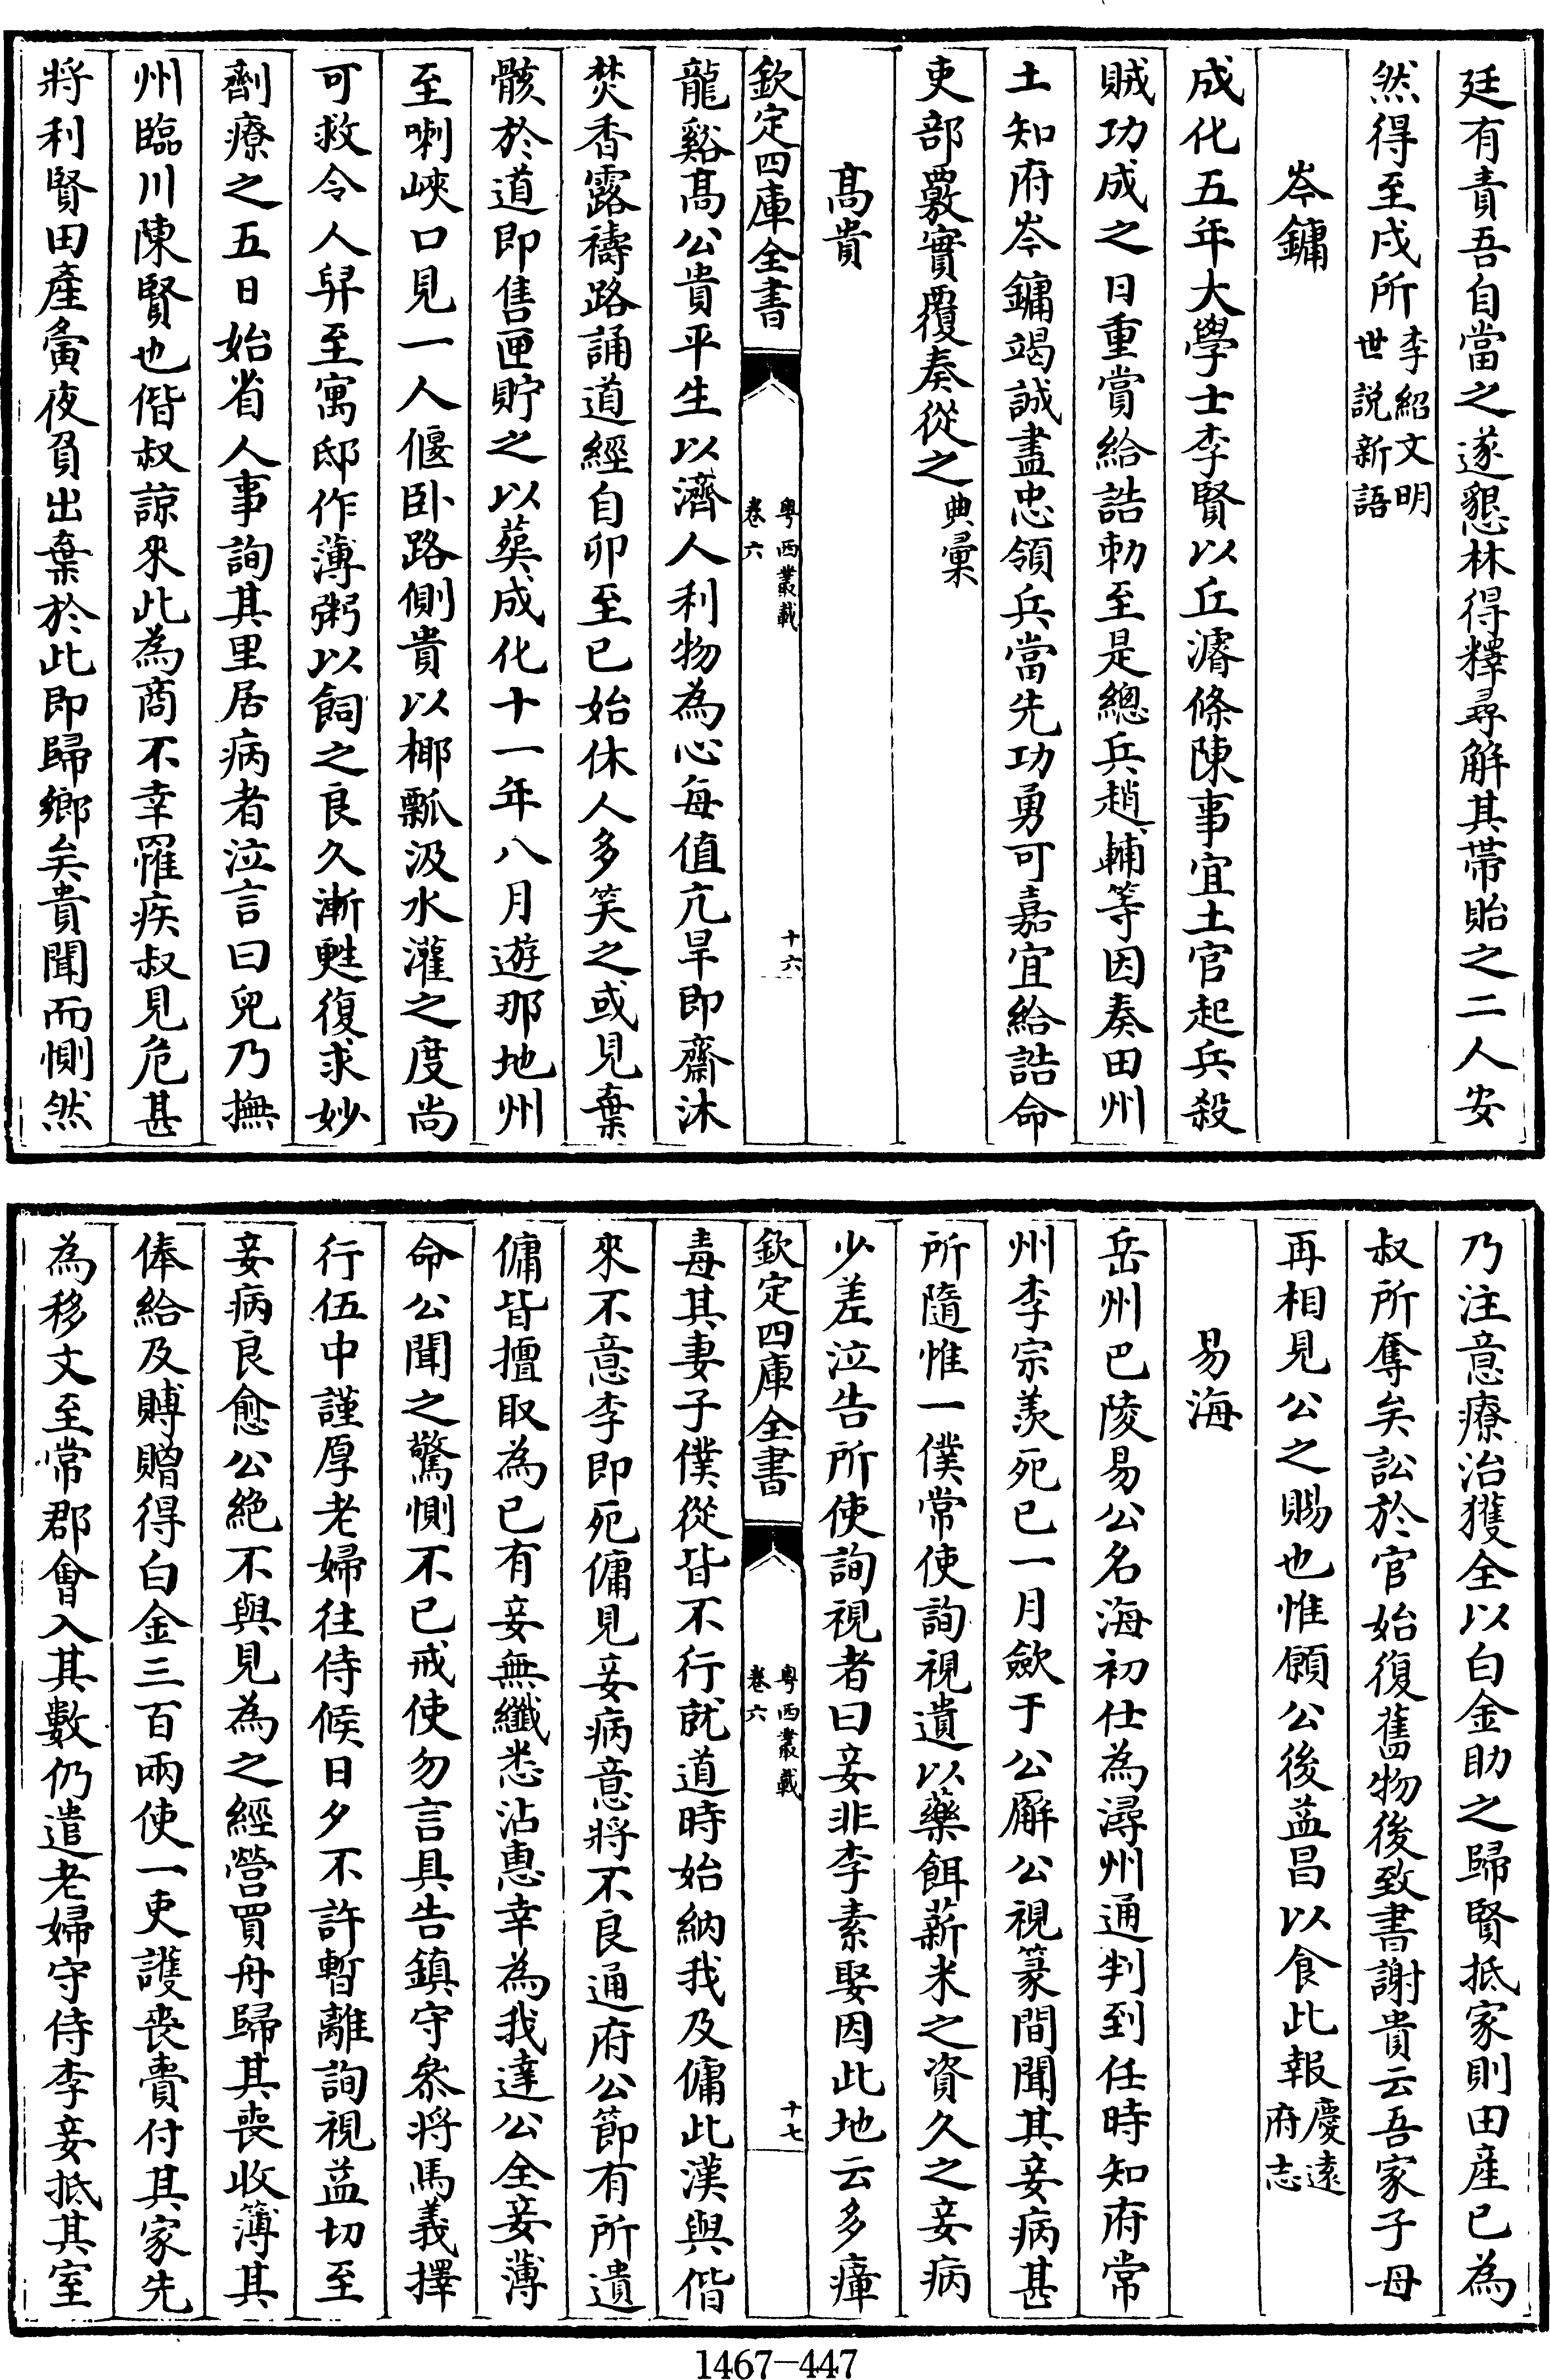 廷有責吾自當之遂懇林得釋尋解其帶貽之二人安
然得至戍所李紹文明世説新語
岑鏞
成化五年大學士李賢以丘濬條陳事宜土官起兵殺
賊功成之日重賞給誥勅至是總兵趙輔等因奏田州
土知府岑鏞竭誠盡忠領兵當先功勇可嘉宜給誥命
吏部覈實覆奏從之典彙
髙貴
欽定四庫全書
粤西叢載
卷六
十六
龍谿髙公貴平生以濟人利物為心每值亢旱即齋沐
焚香露禱路誦道經自卯至已始休人多笑之或見棄
骸於道即售匣貯之以𦵏成化十一年八月遊那地州
至喇峽口見一人偃卧路側貴以椰瓢汲水灌之度尚
可救令人舁至寓邸作薄粥以飼之良久漸甦復求妙
劑療之五日始省人事詢其里居病者泣言曰兒乃撫
州臨川陳賢也偕叔諒來此為商不幸罹疾叔見危甚
將利賢田產夤夜負出棄於此即歸鄉矣貴聞而惻然
乃注意療治獲全以白金助之歸賢抵家則田産已為
叔所奪矣訟於官始復舊物後致書謝貴云吾家子母
再相見公之賜也惟願公後益昌以食此報慶遠府志
易海
岳州巴陵易公名海初仕為潯州通判到任時知府常
州李宗羨死已一月歛于公廨公視篆間聞其妾病甚
所隨惟一僕常使詢視遺以藥餌薪米之資久之妾病
少差泣告所使詢視者曰妾非李素娶因此地云多瘴
欽定四庫全書
粤西叢載
卷六
十七
毒其妻子僕從皆不行就道時始納我及傭此漢與偕
來不意李即死傭見妾病意將不良通府公節有所遺
傭皆擅取為已有妾無纎悉沾惠幸為我達公全妾薄
命公聞之驚惻不已戒使勿言具告鎮守叅将馬義擇
行伍中謹厚老婦往侍候日夕不許暫離詢視益切至
妾病良愈公絶不與見為之經營買舟歸其喪收簿其
俸給及賻贈得白金三百兩使一吏護喪賷付其家先
為移文至常郡會入其數仍遣老婦守侍李妾抵其室
1467-447